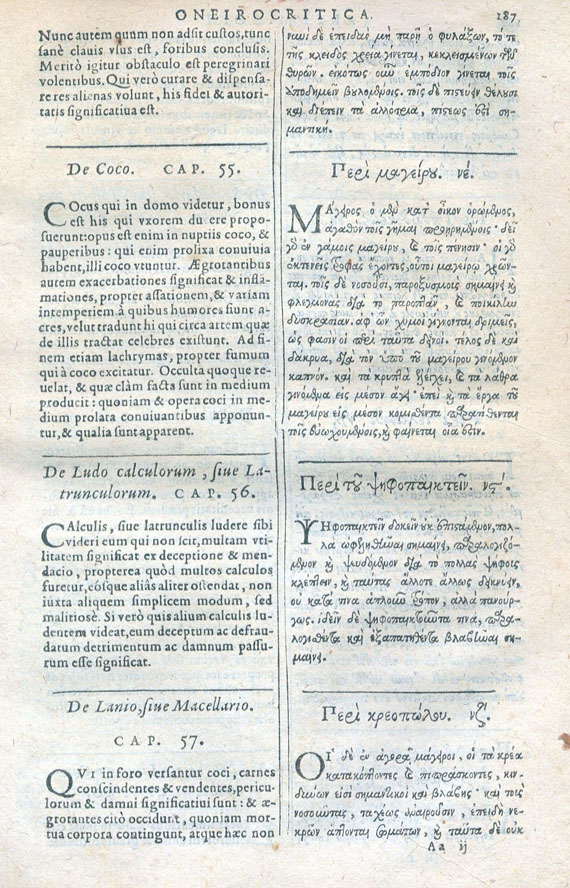 ONEIROCRITICA. 187
Nunc autem quum non adſit custos, tunc
ſanè clauis vſus eſt, foribus concluſis.
Meritò igitur obſtaculo est peregrinari
volentibus. Qui verò curare & diſpenſa-
re res alienas volunt, his fidei & autori-
tatis ſignificatiua eſt.
De Coco. CAP. 55.
COcus qui in domo videtur, bonus
eſt his qui vxorem ducere propo-
ſuerunt: opus eſt enim in nuptiis coco, &
pauperibus: qui enim prolixa conuiuia
habent, illi coco vtuntur. Ægrotantibus
autem exacerbationes ſignificat & infla-
mationes, propter aſſationem, & variam
intemperiem à quibus humores fiunt a-
cres, velut tradunt hi qui circa artem quæ
de illis tractat celebres exiſtunt. Ad fi-
nem etiam lachrymas, propter fumum
qui à coco excitatur. Occulta quoque re-
uelat, & quæ clàm facta ſunt in medium
producit: quoniam & opera coci in me-
dium prolata conuiuantibus apponun-
tur, & qualia ſunt apparent.
De Ludo calculorum, ſiue La-
trunculorum. CAP. 56.
CAlculis, ſiue latrunculis ludere ſibi
videri eum qui non ſcit, multam vti-
litatem ſignificat ex deceptione & men-
dacio, propterea quòd multos calculos
furetur, eóſque aliàs aliter oſtendat, non
iuxta aliquem ſimplicem modum, ſed
malitiosè. Si verò quis alium calculis lu-
dentem videat, eum deceptum ac defrau-
datum detrimentum ac damnum paſſu-
rum eſſe ſignificat.
De Lanio, ſiue Macellario.
CAP. 57.
QVI in foro verſantur coci, carnes
conſcindentes & vendentes, pericu-
lorum & damni ſignificatiui ſunt: & æ-
grotantes citò occidunt, quoniam mor-
tua corpora contingunt, atque hæc non
νυνὶ δὲ ἐπειδὰν μὴ παρῇ ὁ φυλάξων, τό τε
τῆς κλειδὸς χρεία γίνεται, κεκλεισμένων τῶν
θυρῶν. εἰκότως οὖν ἐμπόδιον γίνεται τοῖς
ἀποδημεῖν βουλομένοις. τοῖς δὲ πιστεύειν θέλουσι
καὶ διέπειν τὰ ἀλλότρια, πίστεώς ἐστι ση-
μαντική.
Περὶ μαγείρου. νέ.
ΜΑγειρος ὁ μὲν κατ' οἶκον ὁρώμενος,
ἀγαθὸν τοῖς γῆμαι προῃρημένοις· δεῖ
γὰρ ἐν γάμοις μαγείρου, καὶ τοῖς πένησιν· οἱ γὰρ
ἐκτενεῖς τροφὰς ἔχοντες, οὗτοι μαγείρῳ χρῶν-
ται. τοῖς δὲ νοσοῦσι, παροξυσμοὺς σημαίνει καὶ
φλεγμονὰς διὰ τὸ παροπτᾶν, καὶ ποικίλην
δυσκρασίαν. ἀφ' ὧν χυμοὶ γίνονται δριμεῖς,
ὥς φασιν οἱ περὶ ταῦτα δεινοί. τέλος δὲ καὶ
δάκρυα, διὰ τὸν ὑπὸ τοῦ μαγείρου γινόμενον
καπνόν. καὶ τὰ κρυπτὰ ἐλέγχει, καὶ τὰ λάθρα
γινόμενα εἰς μέσον ἄγει· ἐπεὶ καὶ τὰ ἔργα τοῦ
μαγείρου εἰς μέσον κομισθέντα παρατίθενται
τοῖς εὐωχουμένοις, καὶ φαίνεται οἷά ἐστιν.
Περὶ τοῦ ψηφοπαικτεῖν. νϛ'.
ΨΗφοπαικτεῖν δοκεῖν οὐκ ἐπιστάμενον, πολ-
λὰ ὠφεληθῆναι σημαίνει, παραλογιζό-
μενον καὶ ψευδόμενον διὰ τὸ πολλὰς ψήφους
κλέπτειν, καὶ ταύτας ἄλλοτε ἄλλως δεικνύειν,
οὐ κατά τινα ἁπλοῦν τρόπον, ἀλλὰ πανούρ-
γως. ἰδεῖν δὲ ψηφοπαικτοῦντά τινα, παρα-
λογισθέντα καὶ ἐξαπατηθέντα βλαβῆναι ση-
μαίνει.
Περὶ κρεοπώλου. νζ'.
ΟΙ δὲ ἐν ἀγορᾷ μάγειροι, οἱ τὰ κρέα
κατακόπτοντες καὶ πιπράσκοντες, κιν-
δύνων εἰσὶ σημαντικοὶ καὶ βλάβης· καὶ τοὺς
νοσοῦντας, ταχέως ἀναιροῦσιν, ἐπειδὴ νε-
κρῶν ἅπτονται σωμάτων, καὶ ταῦτα δὲ οὐκ
Aa ij